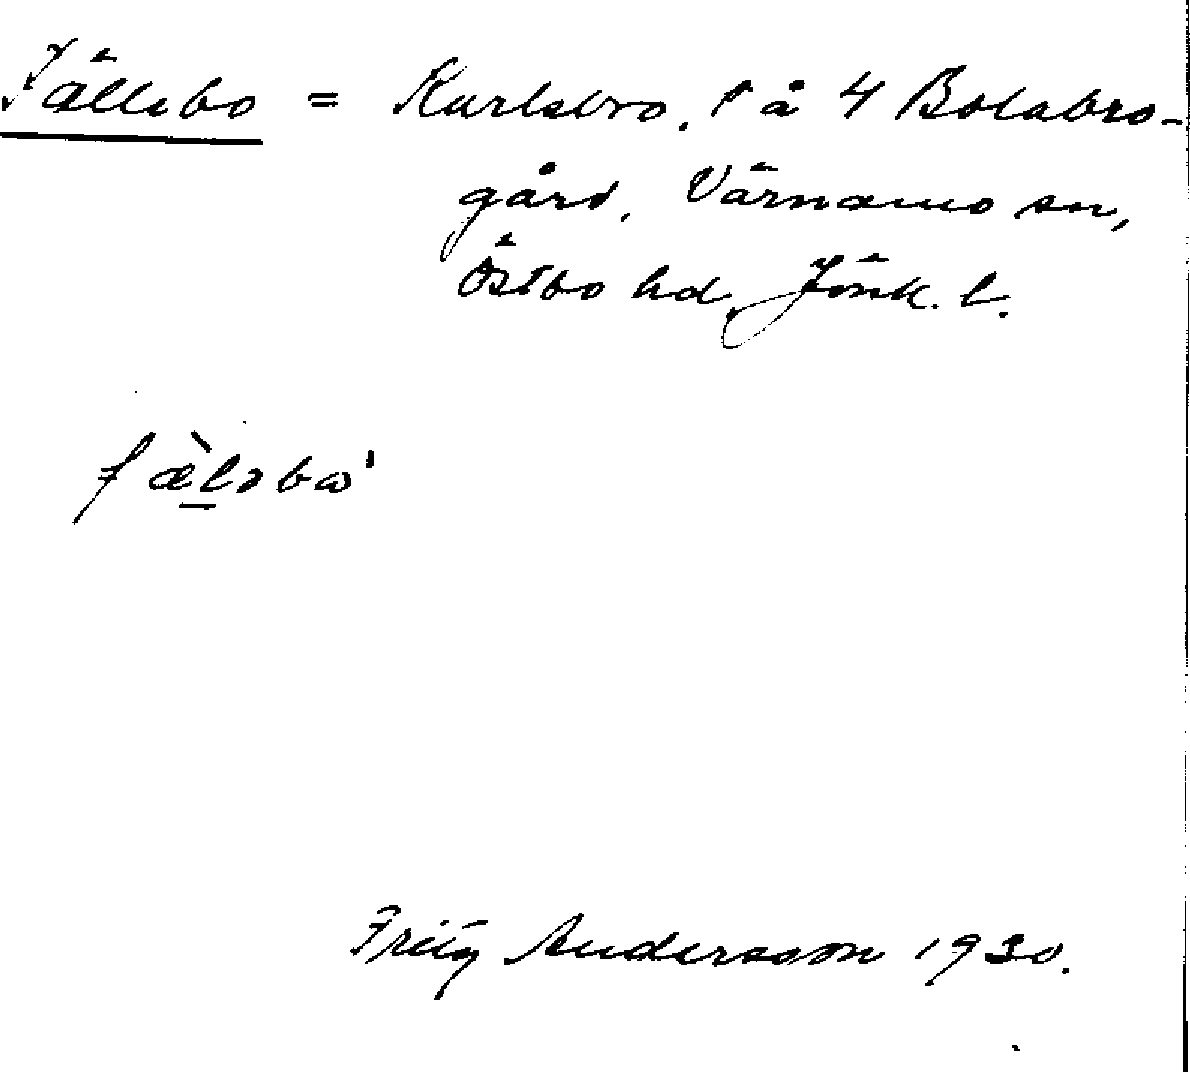 Fällebo = Karlsbro, l å 4 Bolabro-
gård, Värnamo sn,
Östbo hd, Jönk. l.
fæ̀ləbω'
Fritz Andersson 1930.